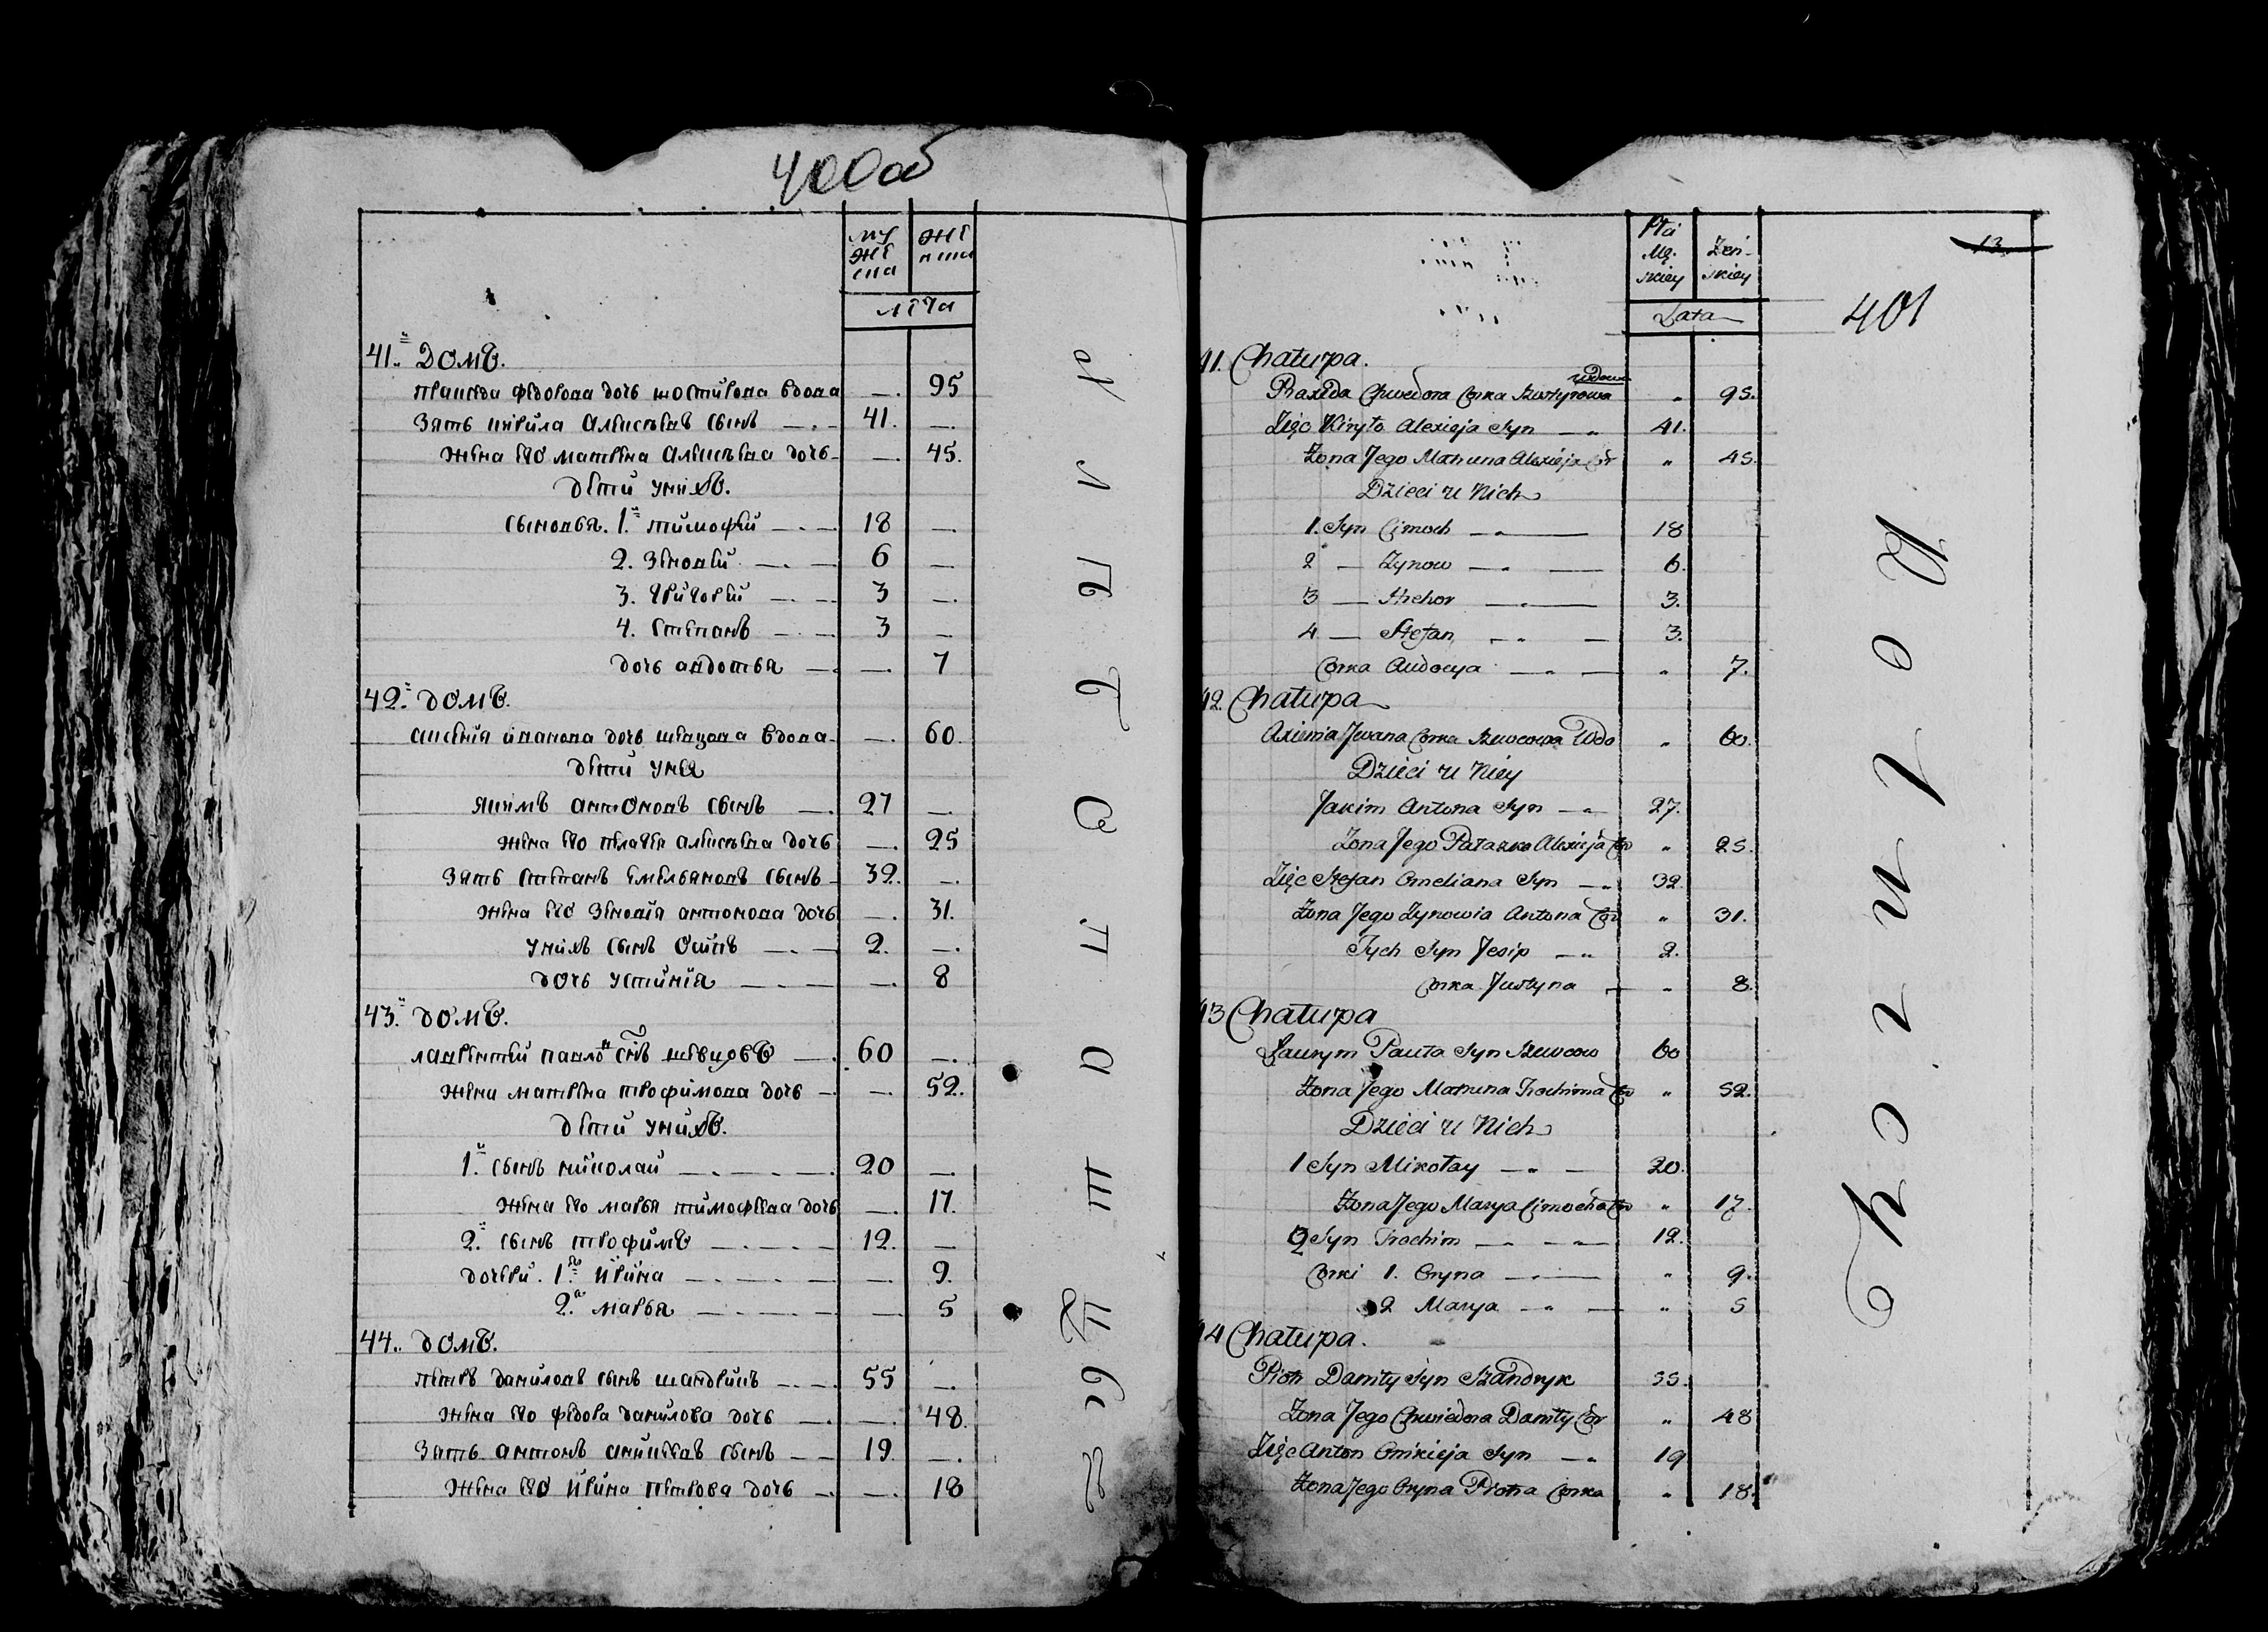 400об
муже ска
женска
лѣта
41.й Домъ.
праскева федорова дочь шостирова вдова —. 95
Зять кирила алексѣевъ сынъ —.— 41. —.
жена его матрена алексѣева дочь — —. 45.
дѣти унихъ.
сыновья. 1.й тимофей —.— 18 —.
2. Зеновей —.— 6 —.
3. григорей —.— 3 —.
4. степанъ —.— 3 —
дочь авдотья — —. 7
42.й домъ.
аксенiя иванова дочь швецова вдова —. 60.
дѣти унея
якимъ антоновъ сынъ —. 27 —.
жена его пелагея алексѣева дочь —. 25
зять степанъ емельяновъ сынъ — 32. —.
жена его зеновiя антонова дочь —. 31.
унихъ сынъ осипъ —.— 2. —.
дочь устинiя —.— —. 8
43.й домъ.
лаврентей павло въ снъ швецовъ —. 60 —.
жена матрена трофимова дочь —. —. 52.
дѣти унихъ.
1.й сынъ николай —.—.—. 20 —.
жена его марья тимофеева дочь —. 17.
2.й сынъ трофимъ —.—.— 12. —
дочери. 1.я ирина —.—.— —. 9.
2.я марья —.—.— — 5
44.й домъ.
петръ даниловъ сынъ шандрикъ —.— 55 —.
жена его федора данилова дочь —. —. 48.
Зять антонъ аникеевъ сынъ — — 19. —.
жена его ирина петрова дочь —. —. 18
Płci Mę. skiey
Żeń- skiey
Lata
13
401
41. Chałupa.
Praxeda Chwedora Corka Szostyrowa wdowa „ 95.
Zięc Kiryło Alexieja Syn — „ 41.
Żona Jego Matruna Alexieja Cor „ 45.
Dzieci u Nich
1. Syn Cimoch — „ — 18
2 — Zynow — „ — 6.
3 — Hrehor — „ — 3.
4 — Stefan — „ — 3.
Corka Audocya — „ — „ 7.
42. Chałupa
Axienia Jwana Corka Szewcowa Wdo „ 60.
Dzieci u Niey
Jakim Antona Syn — „ 27.
Żona Jego Pałaszka Alexieja Cor „ 25.
Zięc Stefan Omeliana Syn — „ 32.
Żona Jego Zynowia Antona Cor „ 31.
Tych Syn Jesip — „ 2.
Corka Justyna — „ 8.
43 Chałupa
Ławryn Pawła Syn Szewcow 60
Żona Jego Matruna Trochima Cor „ 52.
Dzieci u Nich
1 Syn Mikołay — „ — 20.
Żona Jego Marya Cimocha Cor „ 17.
2 Syn Trochim — „ — 12.
Corki 1. Oryna — „ — „ 9.
2 Marya — „ — „ 5
44 Chałupa.
Piotr Daniły Syn Szandryk 55.
Żona Jego Chwiedora Daniły Cor „ 48
Zięc Anton Onikieja Syn — „ 19
Żona Jego Oryna Piotra Corka „ 18.